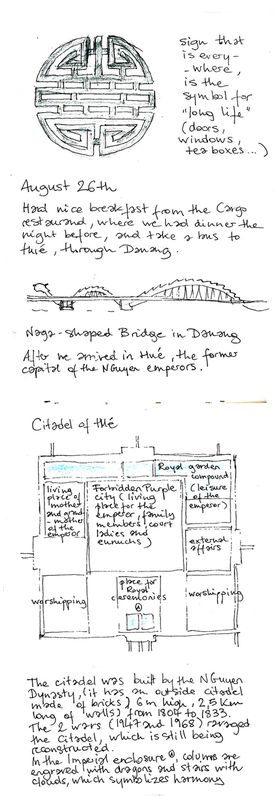 sign that
is every-
-where,
is the
symbol for
"long life"
(doors,
windows,
tea boxes...)
August 26th
Had nice breakfast from the Cargo
restaurand, where we had dinner the
night before, and take a bus to
Hué, through Danang.
Naga-shaped Bridge in Danang
After we arrived in Hué, the former
capital of the NGuyen emperors.
Citadel of Hué
Royal garden
compound
(leisure
of the
emperor)
living
place of
mother
and grand-
-mother
of the
emperor
Forbidden Purple
city (living
place for the
emperor, family
members, court
ladies and
eunuchs)
external
affairs
worshipping
place for
Royal
ceremonies
worshipping
The citadel was built by the NGuyen
Dynasty, (it has an outside citadel
made of bricks) 6m high, 2,5 km
long of walls) from 1804 to 1833.
The 2 wars (1947 and 1968) ravaged
the Citadel, which is still being
reconstructed.
In the Imperial enclosure, columns are
engraved with dragons and stairs with
clouds, which symbolizes harmony